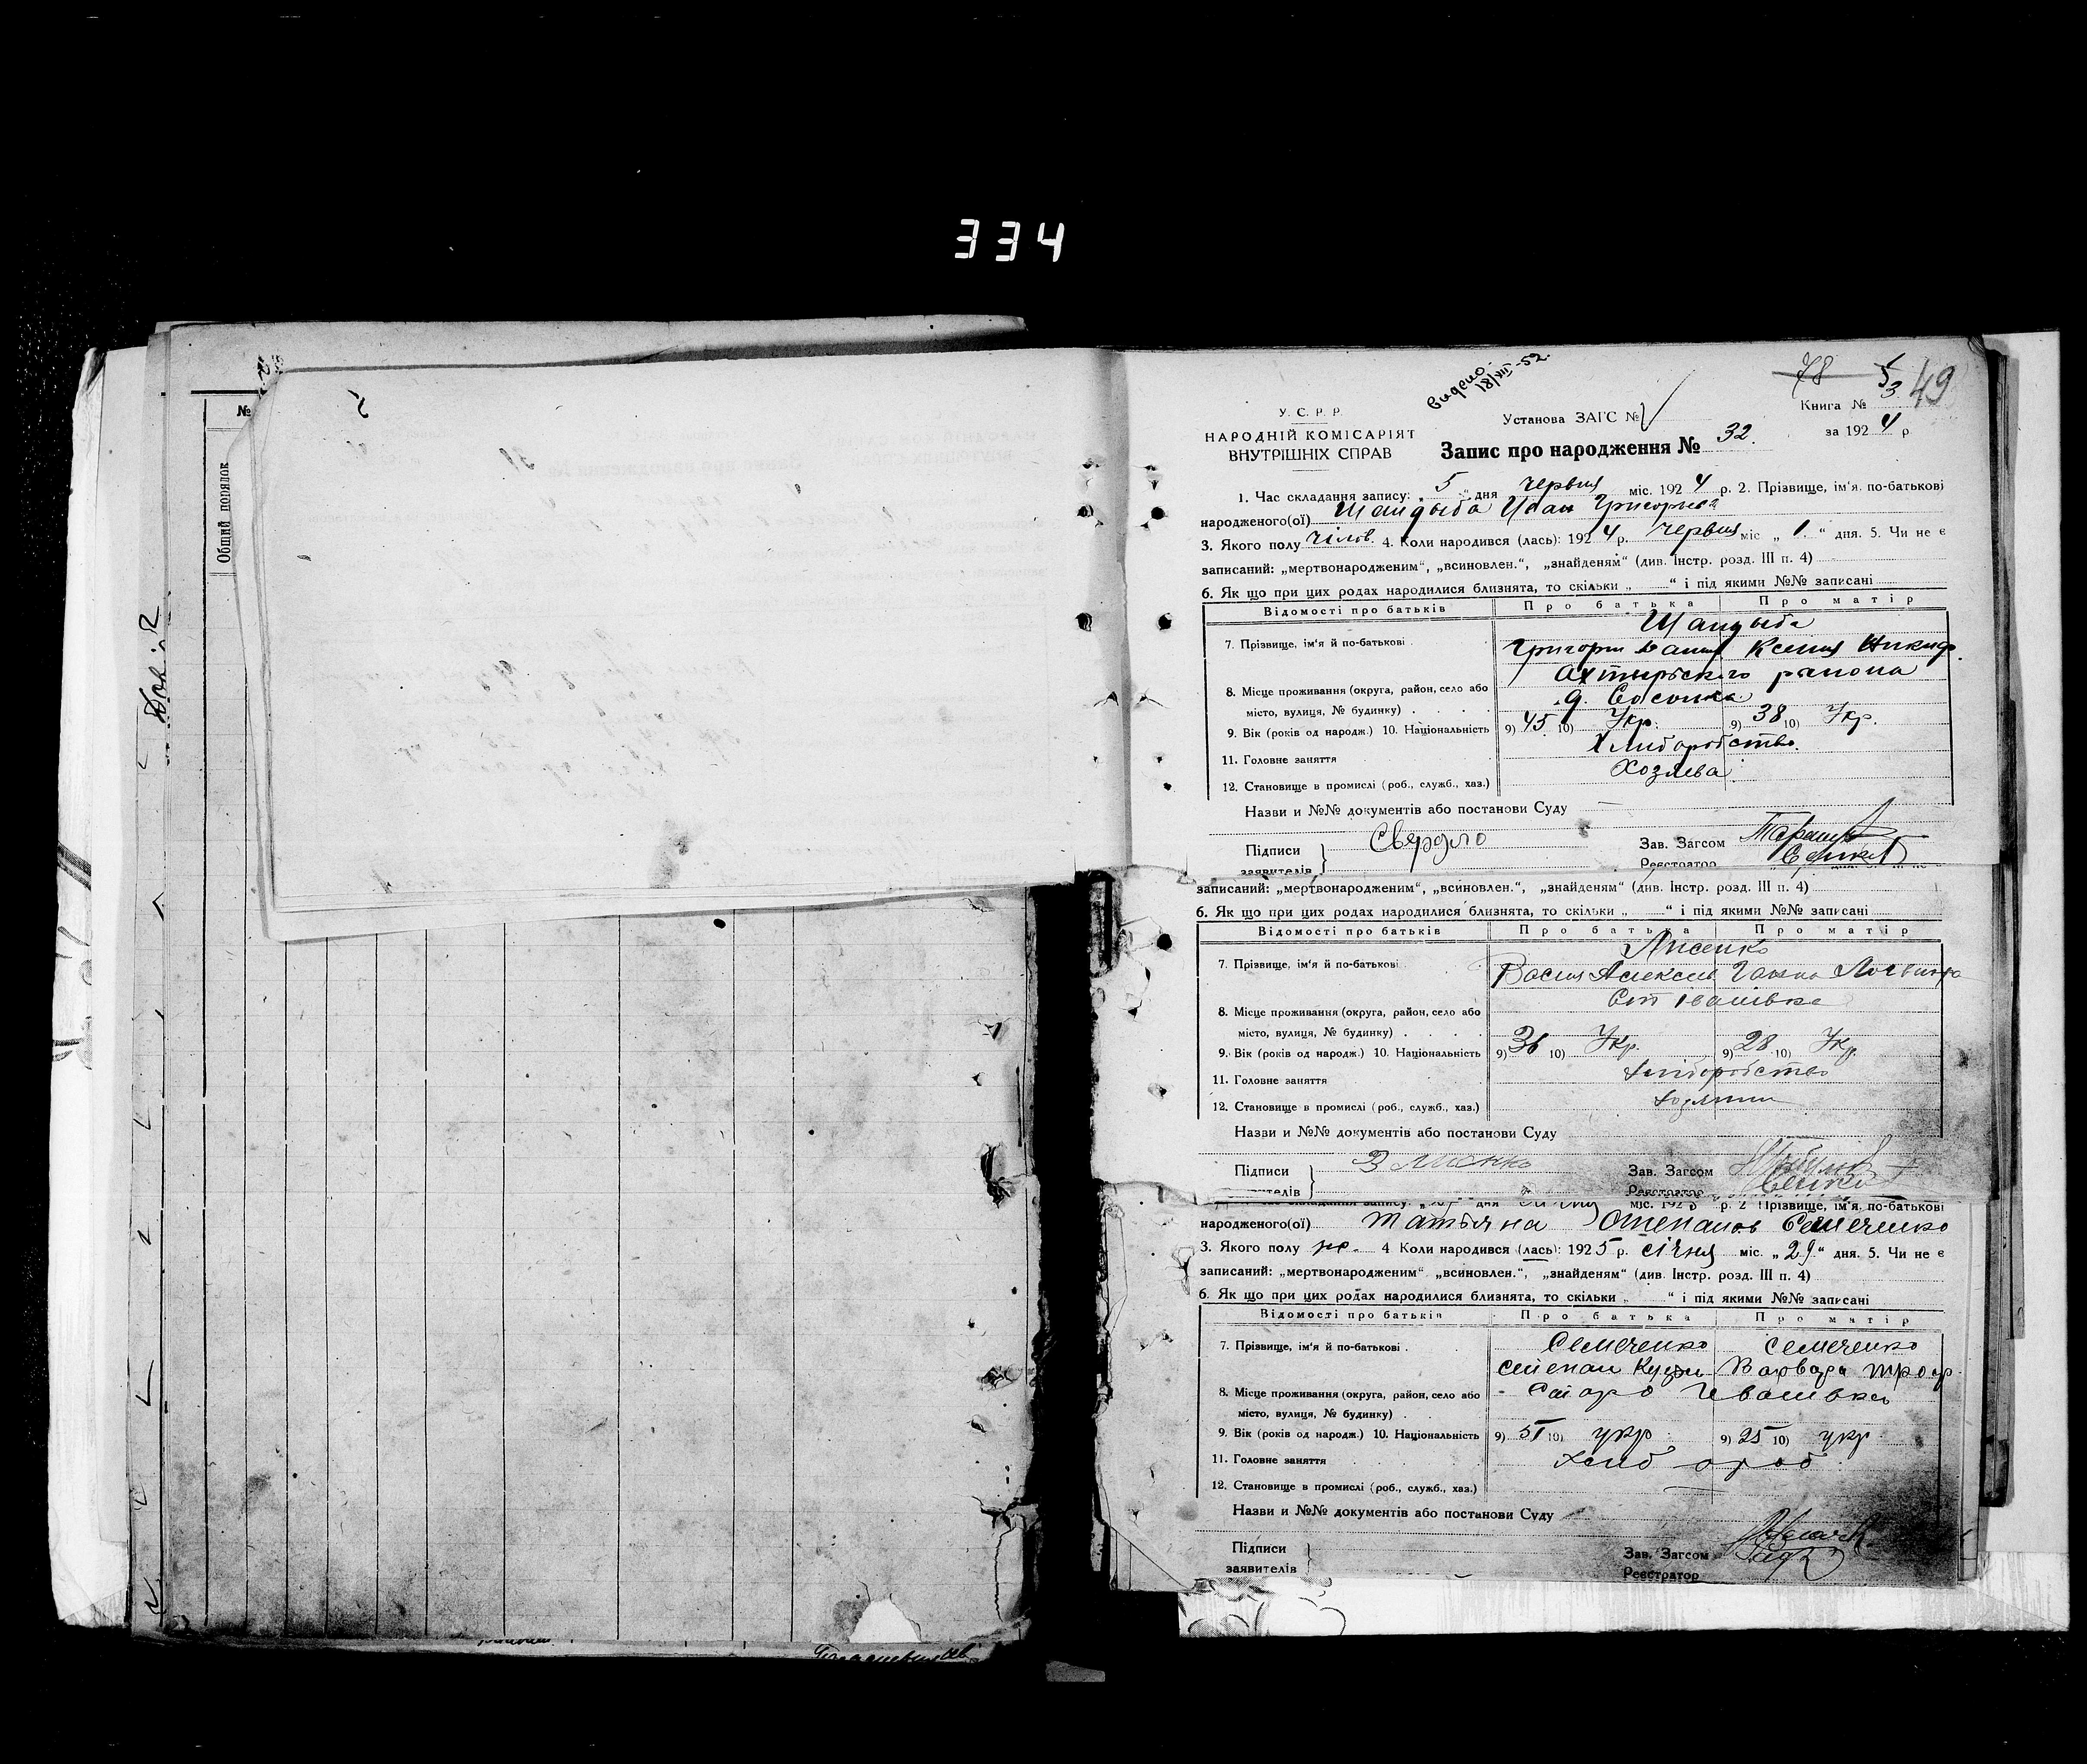 334
№
Общий порядок
видено
18/VIII-52.
78 5 49
3
У. С. Р. Р.
НАРОДНІЙ КОМІСАРІЯТ
ВНУТРІШНІХ СПРАВ
Установа ЗАГС №
Книга №
за 1924 р.
Запис про народження № 32.
1. Час складання запису: „ 5 “ дня червня міс. 1924 р. 2. Прізвище, ім'я, по-батькові
народженого(ої) Шандыба Иван Григорьев
3. Якого полу чілов. 4. Коли народився (лась): 1924 р. червня міс „ 1. “ дня. 5. Чи не є
записаний: „мертвонародженим“, „всиновлен.“, „знайденям“ (див. Інстр. розд. III п. 4)
6. Як що при цих родах народилися близнята, то скільки „ “ і під якими №№ записані
Відомості про батьків Про батька Про матір
Шандыба
7. Прізвище, ім'я й по-батькові Григорий Ксения Никиф.
Ахтырского района
8. Місце проживання (округа, район, село або
д. Сосонка
місто, вулиця, № будинку)
9. Вік (років од народж.) 10. Національність 9) 45 10) Укр. 9) 38 10) Укр.
Хлиборобство.
11. Головне заняття
Хозяева
12. Становище в промислі (роб., служб., хаз.)
Назви и №№ документів або постанови Суду
Підписи Свердло Зав. Загсом
заявителів Реєстратор
записаний: „мертвонародженим“, „всиновлен.“, „знайденям“ (див. Інстр. розд. III п. 4)
6. Як що при цих родах народилися близнята, то скільки „ “ і під якими №№ записані
Відомості про батьків Про батька Про матір
Лисенко
7. Прізвище, ім'я й по-батькові Васил Алексеев Ганна
Ст Іванівка
8. Місце проживання (округа, район, село або
місто, вулиця, № будинку)
9. Вік (років од народж.) 10. Національність 9) 36 10) Укр. 9) 28 10) Укр.
Хлиборобство
11. Головне заняття
12. Становище в промислі (роб., служб., хаз.)
Назви и №№ документів або постанови Суду
Підписи В Лисенко Зав. Загсом
Реєстратор
міс. 1925 р. 2 Прізвище, ім'я, по-батькові
народженого(ої) Татьяна Степанов Семеченко
3. Якого полу ж. 4 Коли народився (лась): 1925 р. січня міс. „ 29 “ дня. 5. Чи не є
записаний: „мертвонародженим“ „всиновлен.“, „знайденям“ (див. Інстр. розд. III п. 4)
6. Як що при цих родах народилися близнята, то скільки „ “ і під якими №№ записані
Відомості про батьків Про батька Про матір
7. Прізвище, ім'я й по-батькові Семеченко Семеченко
степан Кузм Варвара Троф.
8. Місце проживання (округа, район, село або Старо Ивановка
місто, вулиця, № будинку)
9. Вік (років од народж.) 10. Національність 9) 51 10) укр 9) 25 10) укр
11. Головне заняття Хлибороб
12. Становище в промислі (роб., служб., хаз.)
Назви и №№ документів або постанови Суду
Підписи Зав. Загсом
заявителів Реєстратор